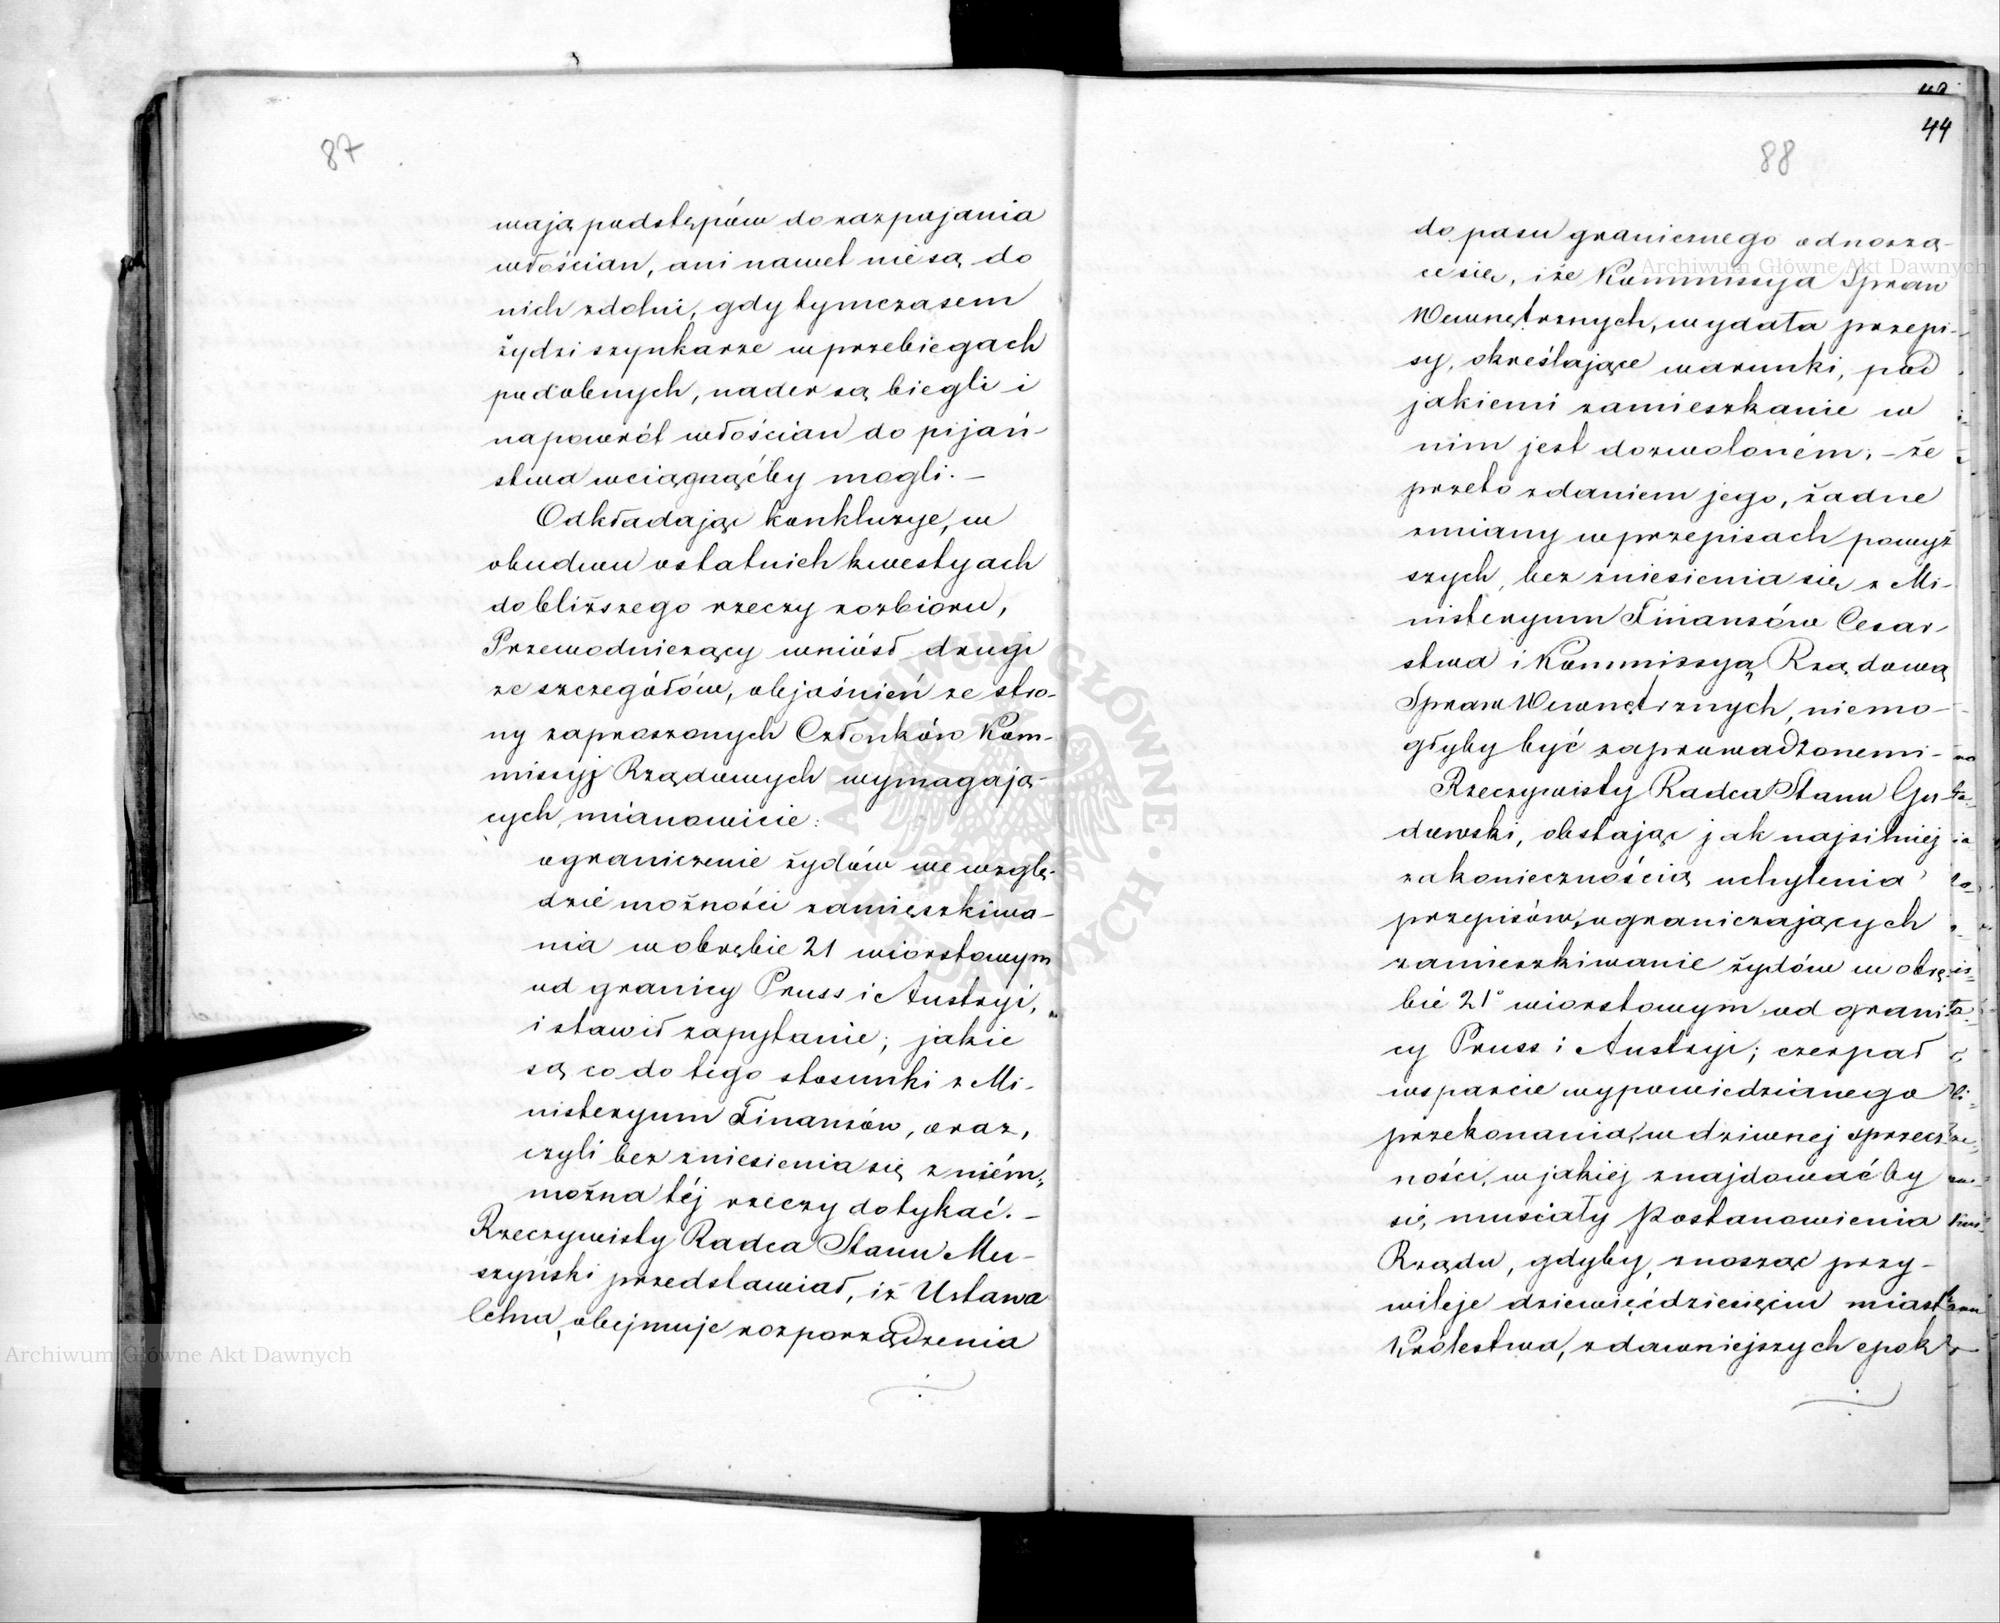 87
wają podstępów do rozpajania
włościan, ani nawet nie są do
nich zdolni, gdy tymczasem
żydzi szynkarze w przebiegach
podobnych, nader są biegli i
napowrót włościan do pijań-
stwa wciągnąćby mogli. –
Odkładając konkluzye, w
obudwu ostatnich kwestyach
do bliższego rzeczy rozbioru,
Przewodniczący wniósł drugi
ze szczegółów, objaśnień ze stro-
ny zaproszonych Członków Kom-
missyj Rządowych wymagają-
cych, mianowicie:
ograniczenie żydów we wzglę-
dzie możności zamieszkiwa-
nia w obrębie 21 wiorstowym
od granicy Pruss i Austryi,
i stawił zapytanie; jakie
są co do tego stosunki z Mi-
nisteryum Finansów, oraz,
czyli bez zniesienia się z niém,
można téj rzeczy dotykać. –
Rzeczywisty Radca Stanu Mu-
szyński przedstawiał, iż Ustawa
Celna, obejmuje rozporządzenia
44
88
do pasu granicznego odnoszą-
ce się, i że Kommissya Spraw
Wewnętrznych, wydała przepi-
sy, określające warunki, pod
jakiemi zamieszkanie w
nim jest dozwoloném; – że
przeto zdaniem jego, żadne
zmiany w przepisach powyż
szych, bez zniesienia się z Mi-
nisteryum Finansów Cesar-
stwa i Kommissyą Rządową
Spraw Wewnętrznych, niemo-
głyby być zaprowadzonemi –
Rzeczywisty Radca Stanu Gu-
dowski, obstając jak najsilniej
za koniecznością uchylenia
przepisów, ograniczających
zamieszkiwanie żydów w obrę-
bie 21° wiorstowym od grani-
cy Pruss i Austryi; czerpał
wsparcie wypowiedzianego
przekonania, w dziwnej sprzecz-
ności, w jakiej znajdować by
się musiały Postanowienia
Rządu, gdyby, znosząc przy-
wileje dziewięćdziesięciu miast
Królestwa, z dawniejszych epok
Archiwum Główne Akt Dawnych
Archiwum Główne Akt Dawnych
ARCHIWUM GŁÓWNE AKT DAWNYCH